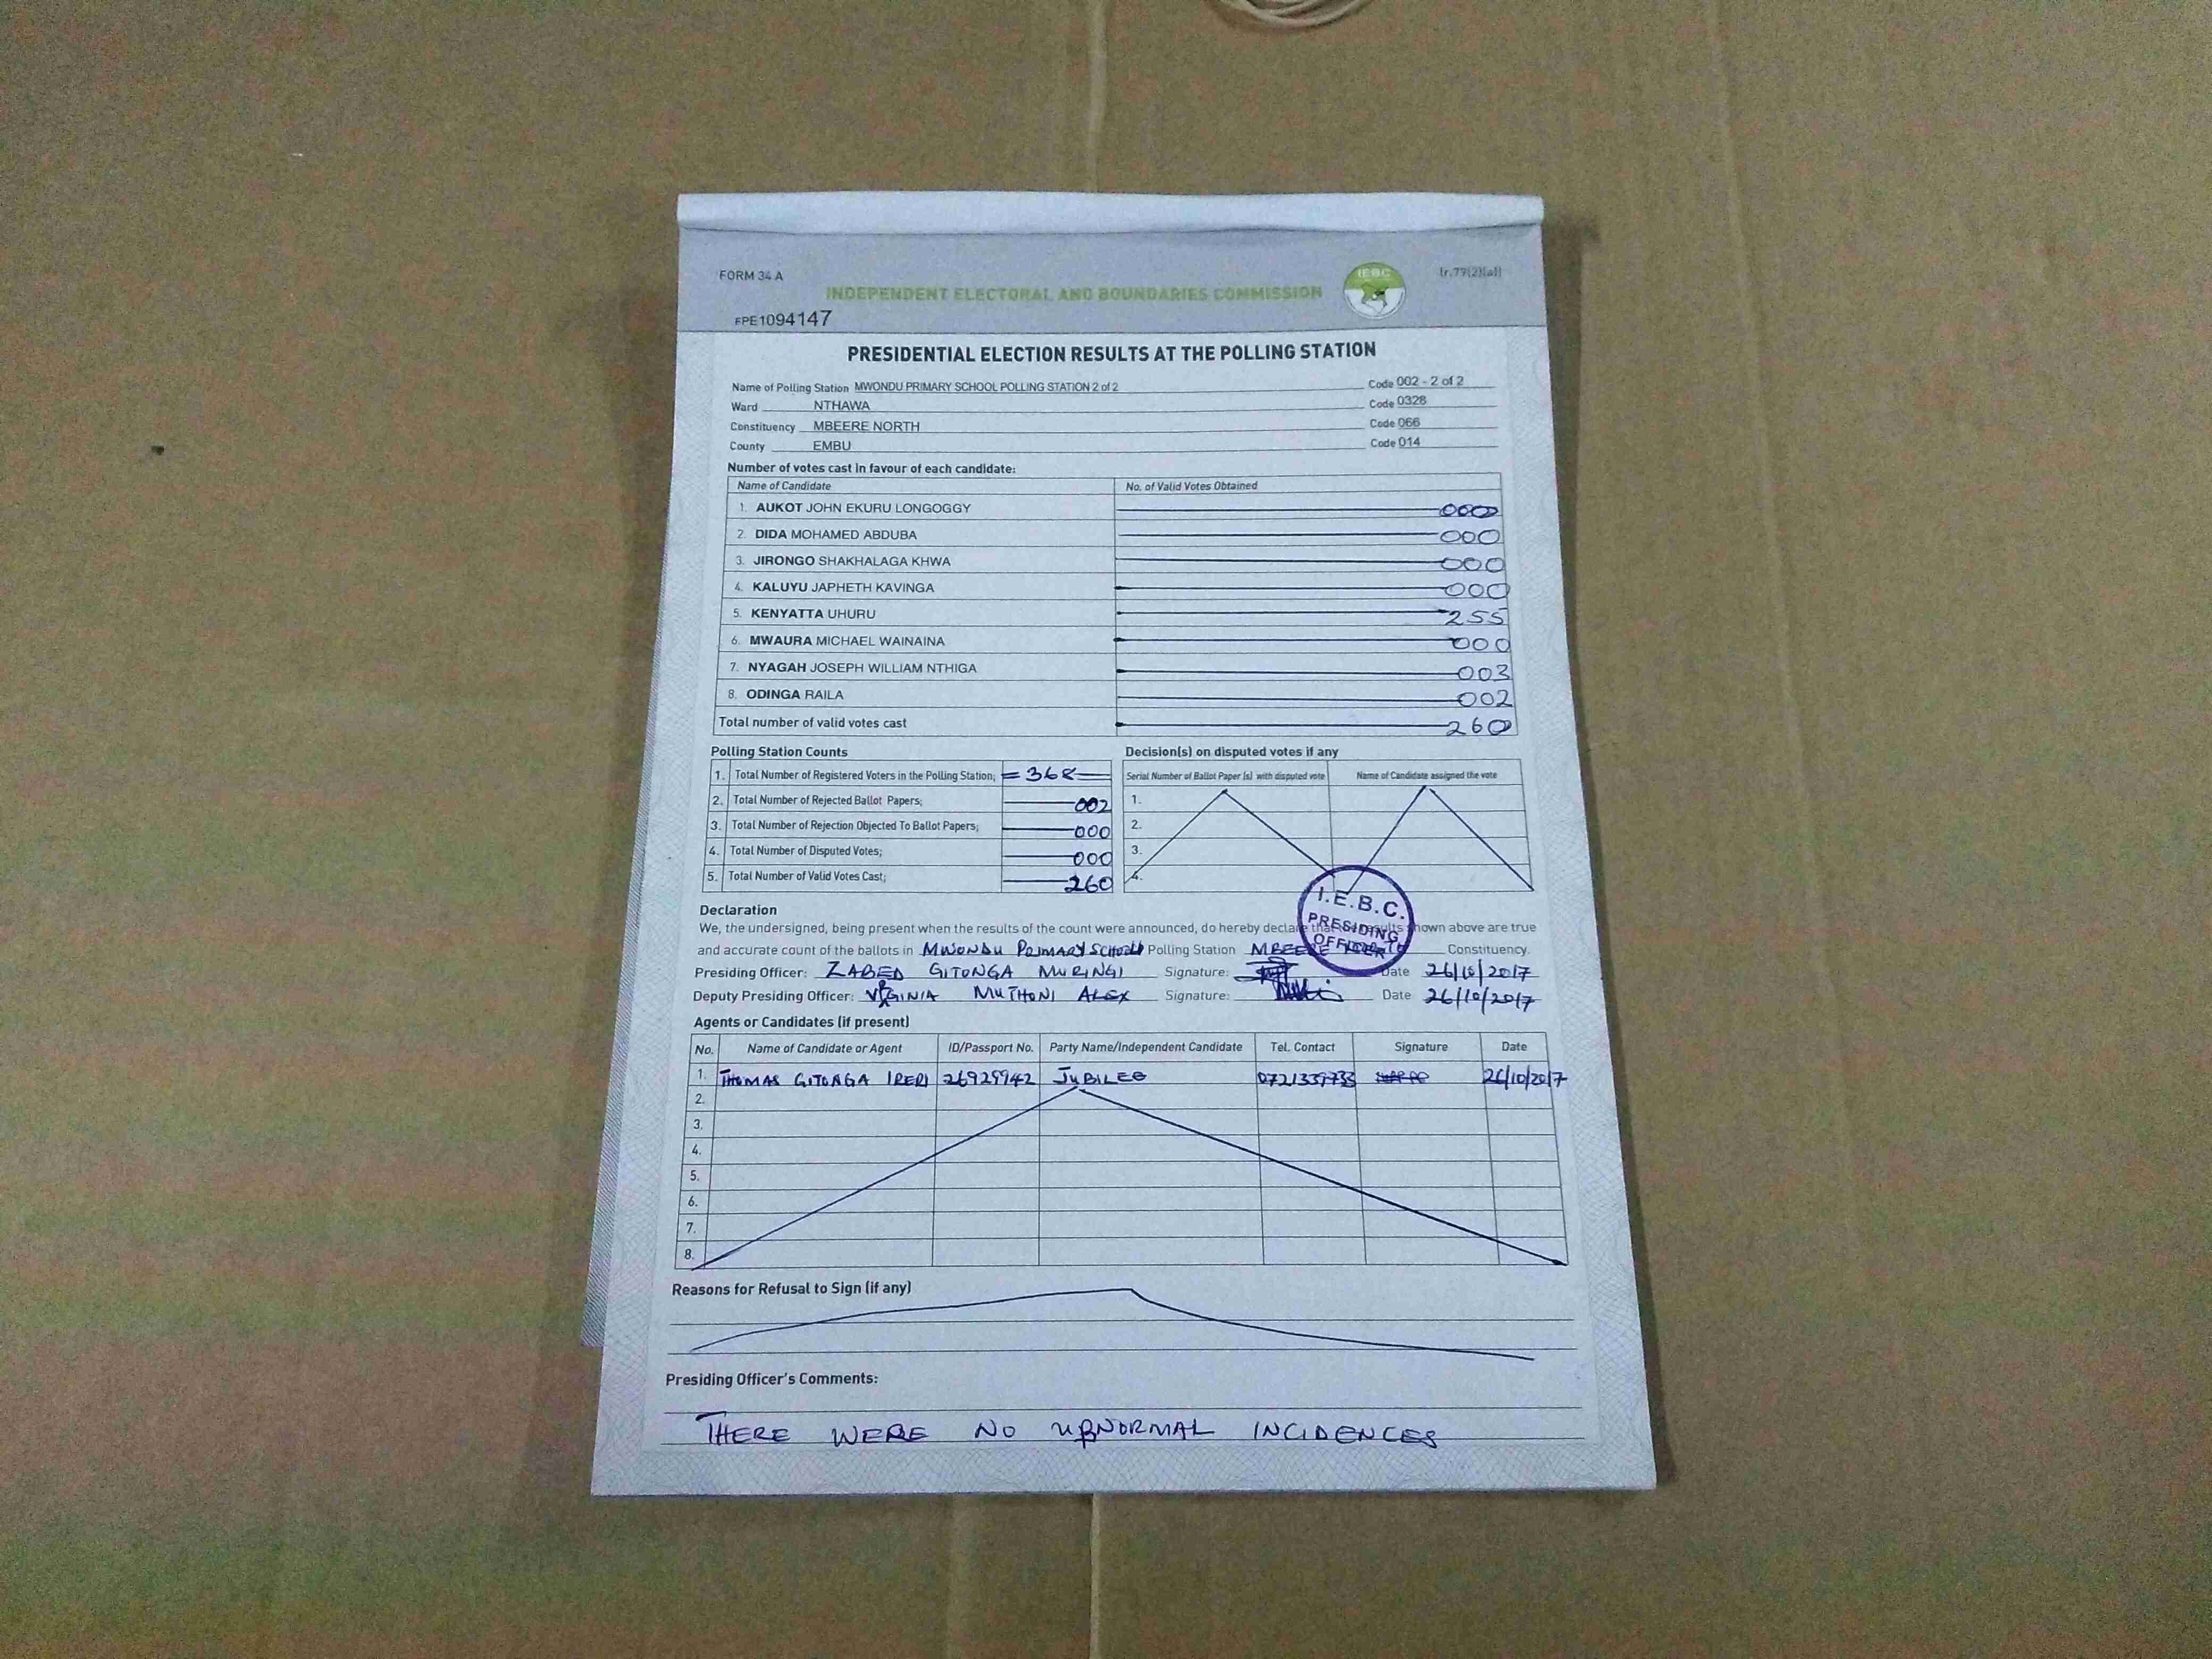 FORM 34 A
IEBC
[r.77(2)(a)]
INDEPENDENT ELECTORAL AND BOUNDARIES COMMISSION
FPE1094147
PRESIDENTIAL ELECTION RESULTS AT THE POLLING STATION
Name of Polling Station MWONDU PRIMARY SCHOOL POLLING STATION 2 of 2 Code 002 - 2 of 2
Ward NTHAWA Code 0328
Constituency MBEERE NORTH Code 066
County EMBU Code 014
Number of votes cast in favour of each candidate:
Name of Candidate No. of Valid Votes Obtained
1. AUKOT JOHN EKURU LONGOGGY 000
2. DIDA MOHAMED ABDUBA 000
3. JIRONGO SHAKHALAGA KHWA 000
4. KALUYU JAPHETH KAVINGA 000
5. KENYATTA UHURU 255
6. MWAURA MICHAEL WAINAINA 000
7. NYAGAH JOSEPH WILLIAM NTHIGA 003
8. ODINGA RAILA 002
Total number of valid votes cast 260
Polling Station Counts Decision(s) on disputed votes if any
1. Total Number of Registered Voters in the Polling Station; = 368 Serial Number of Ballot Paper (s) with disputed vote Name of Candidate assigned the vote
2. Total Number of Rejected Ballot Papers; 002 1.
3. Total Number of Rejection Objected To Ballot Papers; 000 2.
4. Total Number of Disputed Votes; 000 3.
5. Total Number of Valid Votes Cast; 260 4.
I.E.B.C. PRESIDING OFFICER
Declaration
We, the undersigned, being present when the results of the count were announced, do hereby declare that the results shown above are true
and accurate count of the ballots in MWONDU PRIMARY SCHOOL Polling Station MBEERE NORTH Constituency.
Presiding Officer: ZABED GITONGA MURINGI Signature: Date 26/10/2017
Deputy Presiding Officer: VIRGINIA MUTHONI ALEX Signature: Date 26/10/2017
Agents or Candidates (if present)
No. Name of Candidate or Agent ID/Passport No. Party Name/Independent Candidate Tel. Contact Signature Date
1. THOMAS GITONGA IRERI 26929942 JUBILEE 26/10/2017
2.
3.
4.
5.
6.
7.
8.
Reasons for Refusal to Sign (if any)
Presiding Officer's Comments:
THERE WERE NO UBNORMAL INCIDENCES